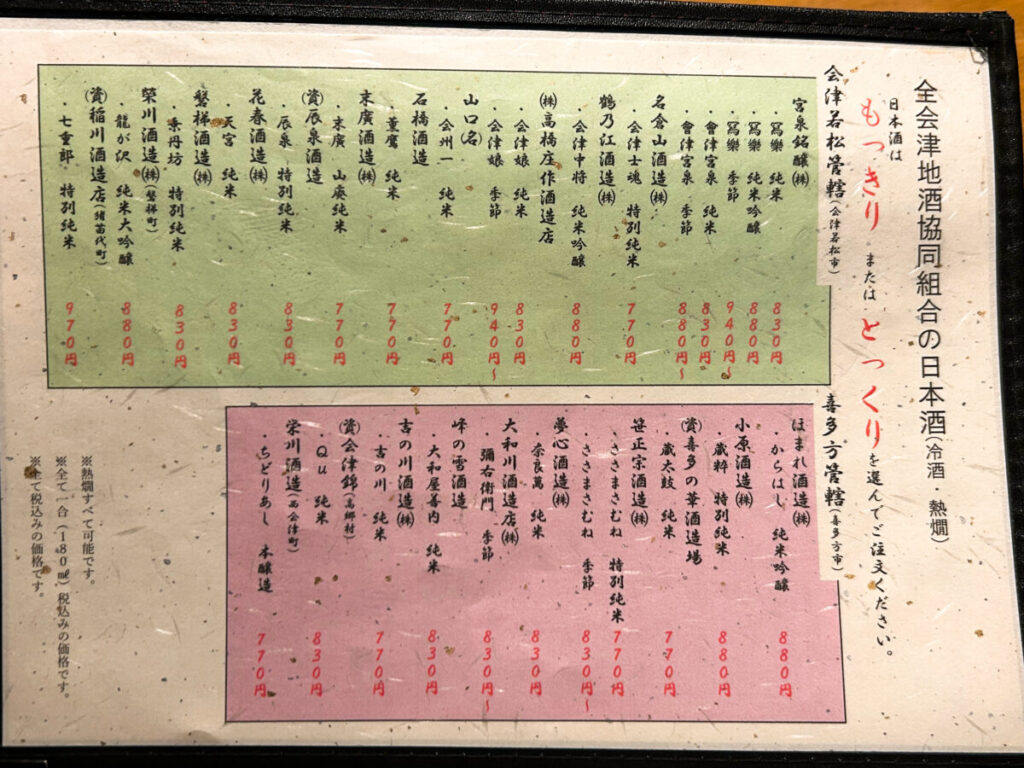 全会津地酒協同組合の日本酒(冷酒・熱燗)
日本酒は
もっきり または とっくりを選んでご注文ください。
会津若松管轄(会津若松市)
宮泉銘醸㈱
・冩樂 純米 830円
・冩樂 純米吟醸 880円
・冩樂 季節 940円~
・會津宮泉 純米 830円
・會津宮泉 季節 880円~
名倉山酒造㈱
・会津士魂 特別純米 770円
鶴乃江酒造㈱
・会津中将 純米吟醸 880円
㈱高橋庄作酒造店
・会津娘 純米 830円
・会津娘 季節 940円~
山口㈴
・会州一 純米 770円
石橋酒造
・薫鷹 純米 770円
末廣酒造㈱
・末廣 山廃純米 770円
㈾辰泉酒造
・辰泉 特別純米 830円
花春酒造㈱
・天宮 純米 830円
磐梯酒造㈱
・乗丹坊 特別純米 830円
榮川酒造㈱(磐梯町)
・龍が沢 純米大吟醸 880円
㈾稲川酒造店(猪苗代町)
・七重郎 特別純米 970円
喜多方管轄(喜多方市)
ほまれ酒造㈱
・からはし 純米吟醸 880円
小原酒造㈱
・蔵粋 特別純米 880円
㈾喜多の華酒造場
・蔵太鼓 純米 770円
笹正宗酒造㈱
・ささまさむね 特別純米 770円
・ささまさむね 季節 830円~
夢心酒造㈱
・奈良萬 純米 830円
大和川酒造店㈱
・彌右衛門 季節 830円~
峰の雪酒造
・大和屋善内 純米 830円
吉の川酒造㈱
・吉の川 純米 770円
㈾会津錦(高郷村)
・Qu 純米 830円
栄川酒造(西会津町)
・ちどりあし 本醸造 770円
※熱燗すべて可能です。
※全て一合(180㎖)税込みの価格です。
※全て税込みの価格です。